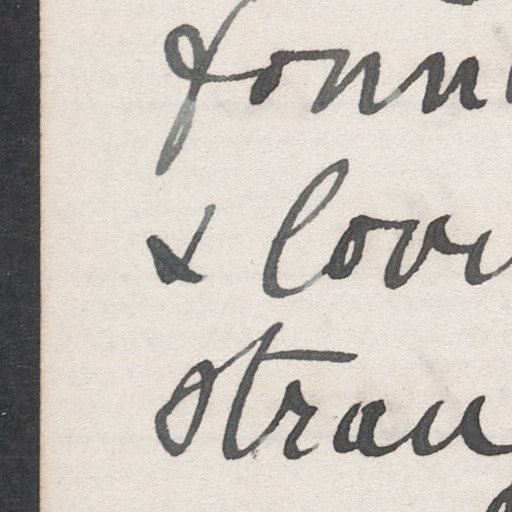 foun
& lovi
stran